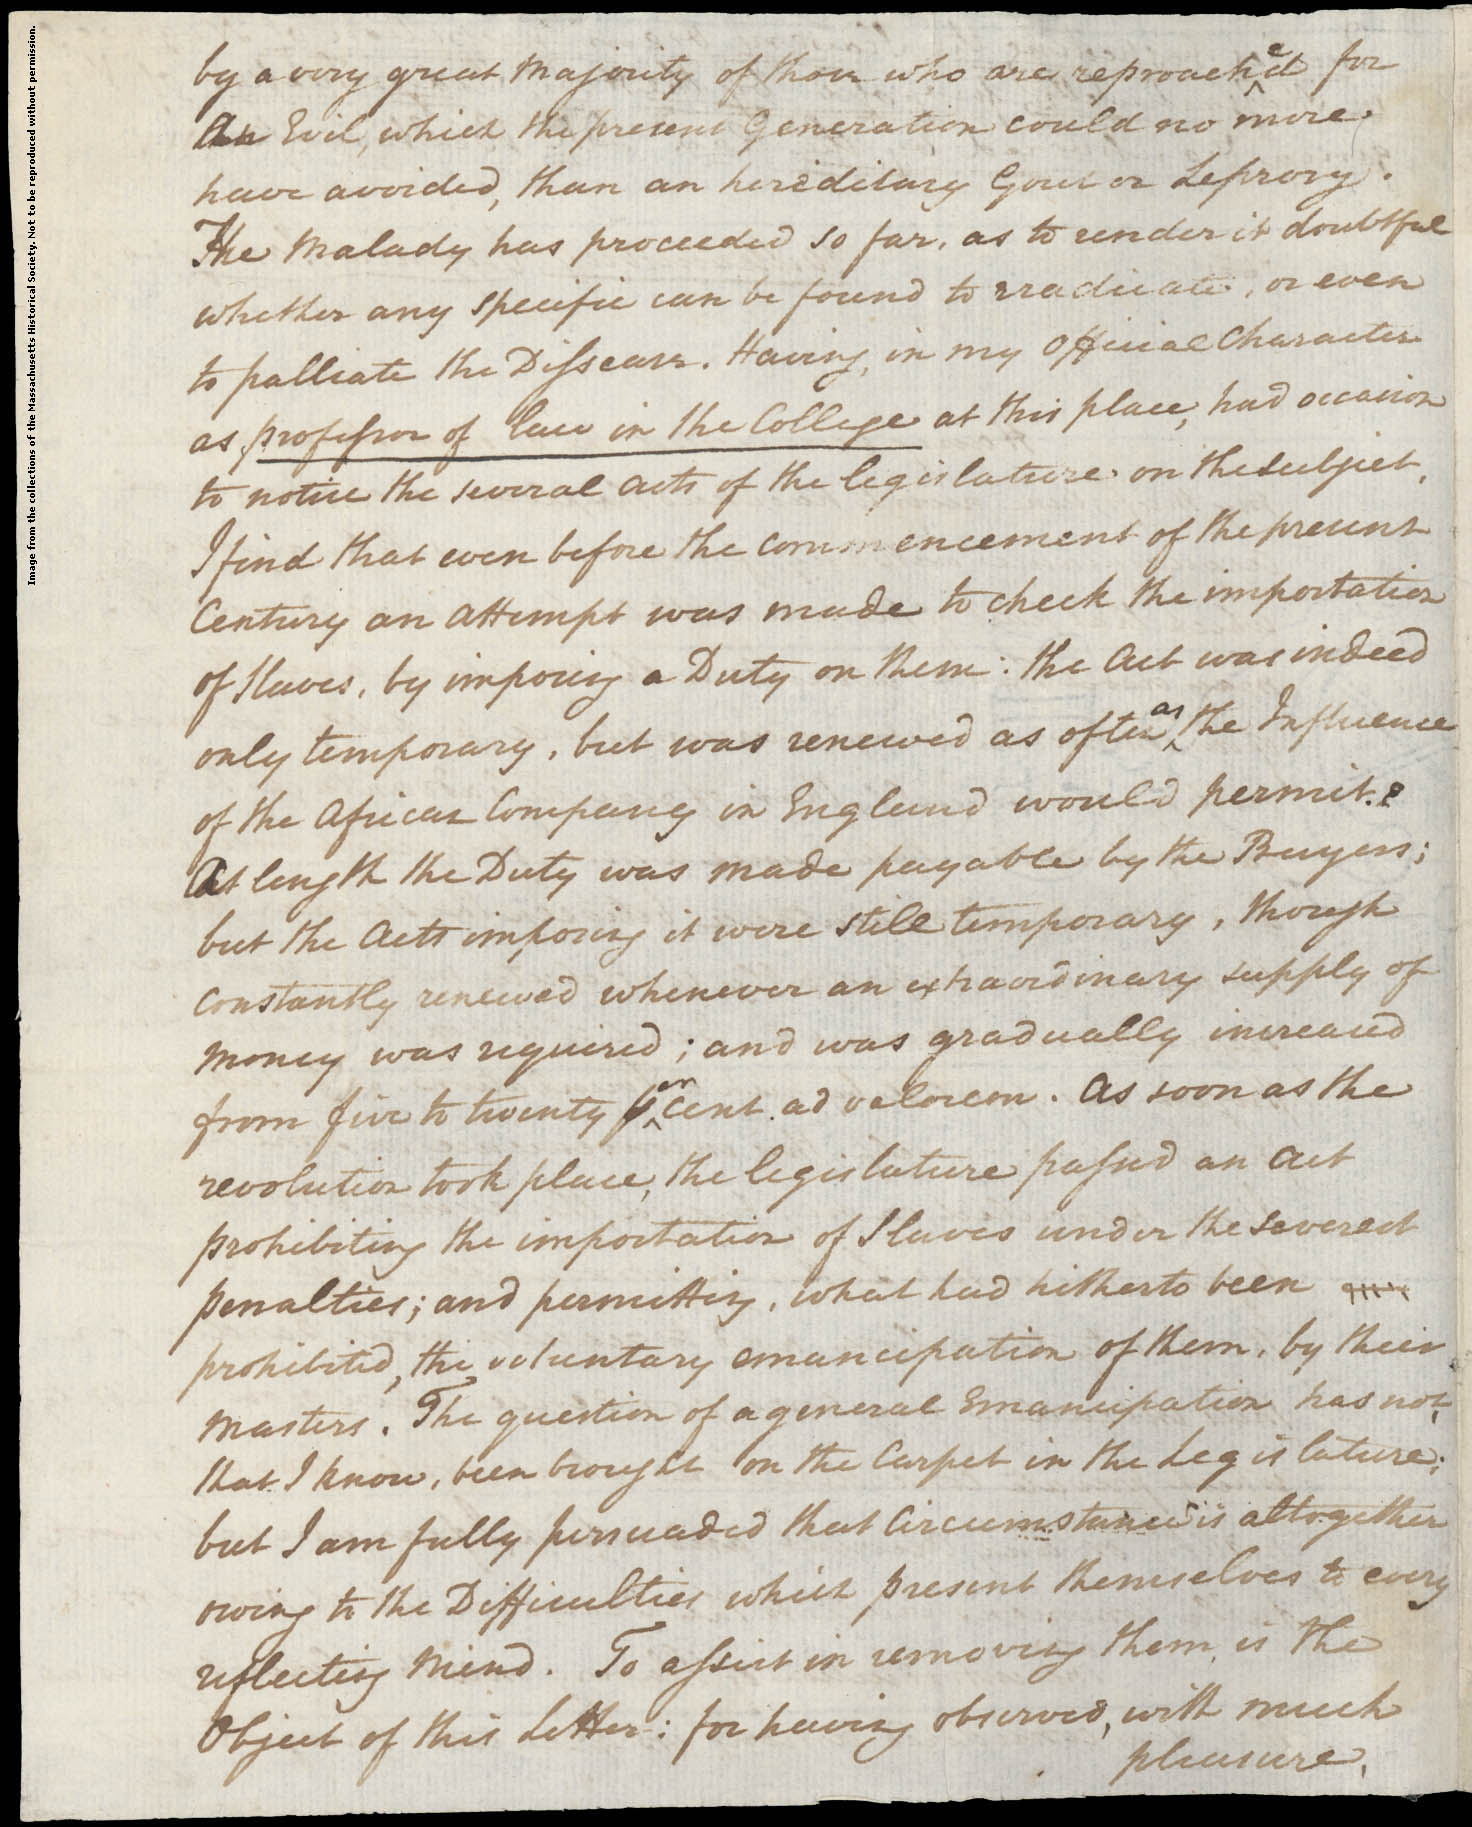 Image from the collections of the Massachusetts Historical Society. Not to be reproduced without permission.
by a very great Majority of those who are reproached for
an Evil, which the present Generation could no more
have avoided, than an hereditary Gout or Leprosy.
The Malady has proceeded so far, as to render it doubtful
whether any specific can be found to eradicate, or even
to palliate the Dissease. Having, in my Official Character
as professor of law in the College at this place, had occasion
to notice the several acts of the legislature on the Subject,
I find that even before the commencement of the present
Century an attempt was made to check the importation
of Slaves, by imposing a Duty on them: the Act was indeed
only temporary, but was renewed as often as the Influence
of the African Company in England would permit.
At length the Duty was made payable by the Buyers;
but the Acts imposing it were still temporary, though
constantly renewed whenever an extraordinary supply of
money was required; and was gradually increased
from five to twenty per Cent. ad valorem. As soon as the
revolution took place, the legislature passed an Act
prohibiting the importation of Slaves under the severest
penalties; and permitting, what had hitherto been
prohibited, the voluntary emancipation of them, by their
Masters. The question of a general Emancipation has not,
that I know, been brought on the Carpet in the Legislature;
but I am fully persuaded that Circumstance is altogether
owing to the Difficulties which present themselves to every
reflecting Mind. To assist in removing them, is the
Object of this Letter: for having observed, with much
pleasure,